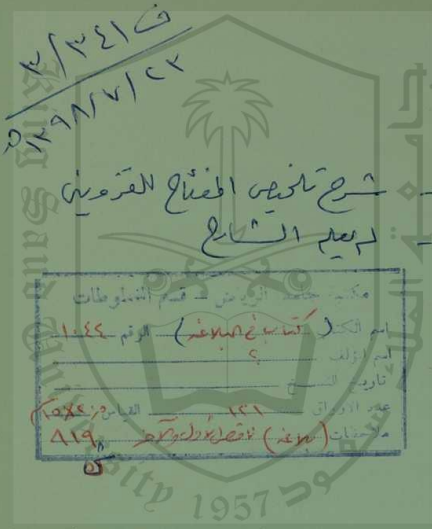 ف ٣/٣٤١
١٣٩٨/٧/٢٣ هـ
- شرح تلخيص المفتاح للقزويني
- لم يعلم الشارح
مكتبة جامعة الرياض - قسم المخطوطات
اسم الكتاب (كتاب في البلاغة) الرقم ١٠٤٤
اسم المؤلف ؟
تاريخ النسخ
عدد الأوراق ١٢١ القياس
ملاحظات (بلاغة) ناقص الأول والآخر ٨١٩
King Saud University 1957